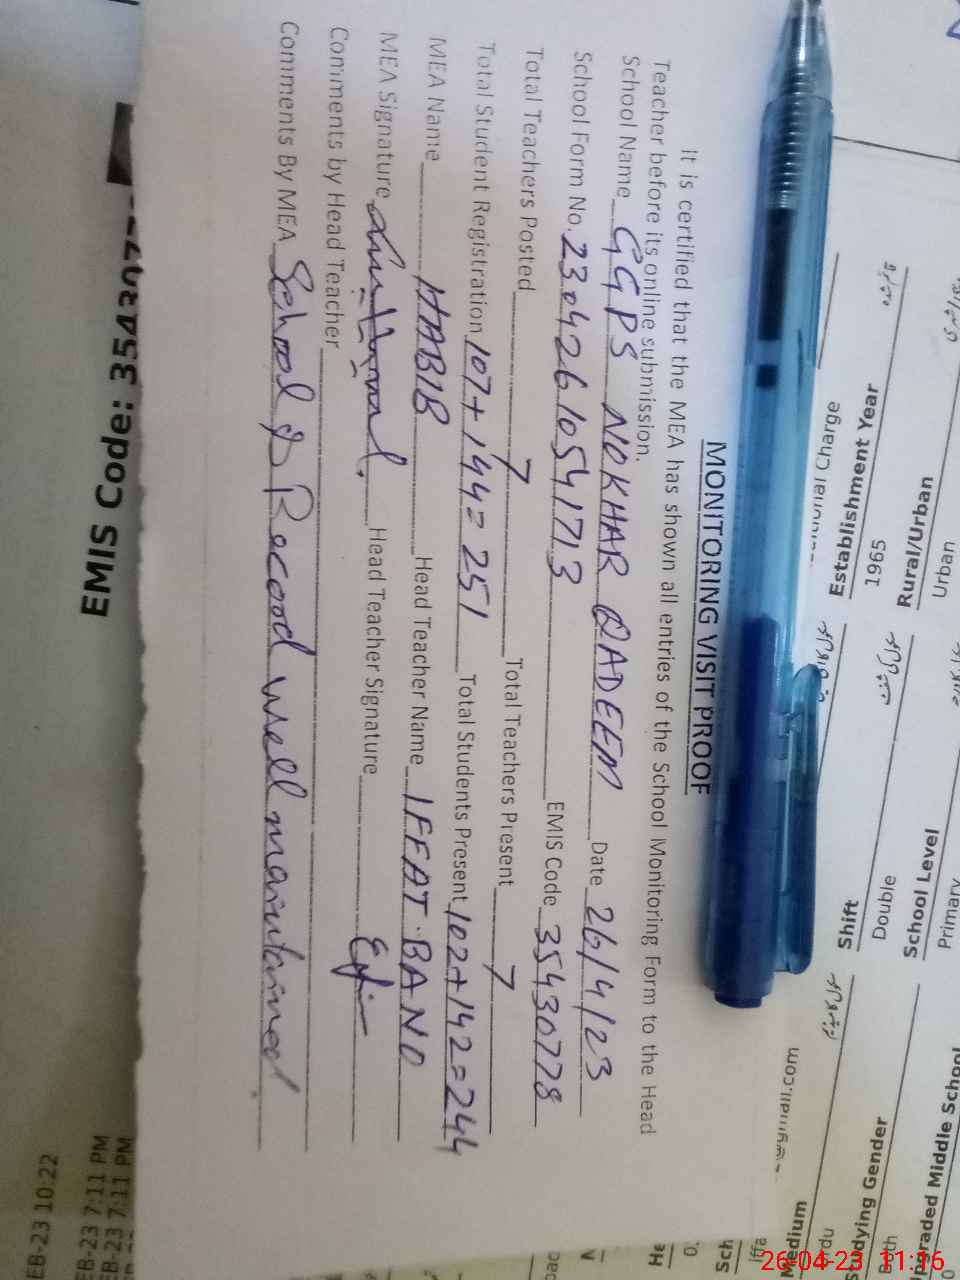 MONITORING VISIT PROOF
It is certified that the MEA has shown all entries of the School Monitoring Form to the Head
Teacher before its online submission.
School Name GGPS NOKHAR QADEEM Date 26/4/23
School Form No. 230426105417713 EMIS Code 35430778
Total Teachers Posted 7 Total Teachers Present 7
Total Student Registration 107+144=251 Total Students Present 102+142=244
MEA Name HABIB Head Teacher Name IFFAT BANO
MEA Signature Head Teacher Signature
Comments by Head Teacher
Comments By MEA School & Record well maintained
EMIS Code:
Charge
Establishment Year
1965
Rural/Urban
Urban
Shift
Double
School Level
Primary
Medium
Gender
pgraded Middle School
EB-23 10:22
EB-23 7:11 PM
EB-23 7:11 PM
26-04-23 11:16